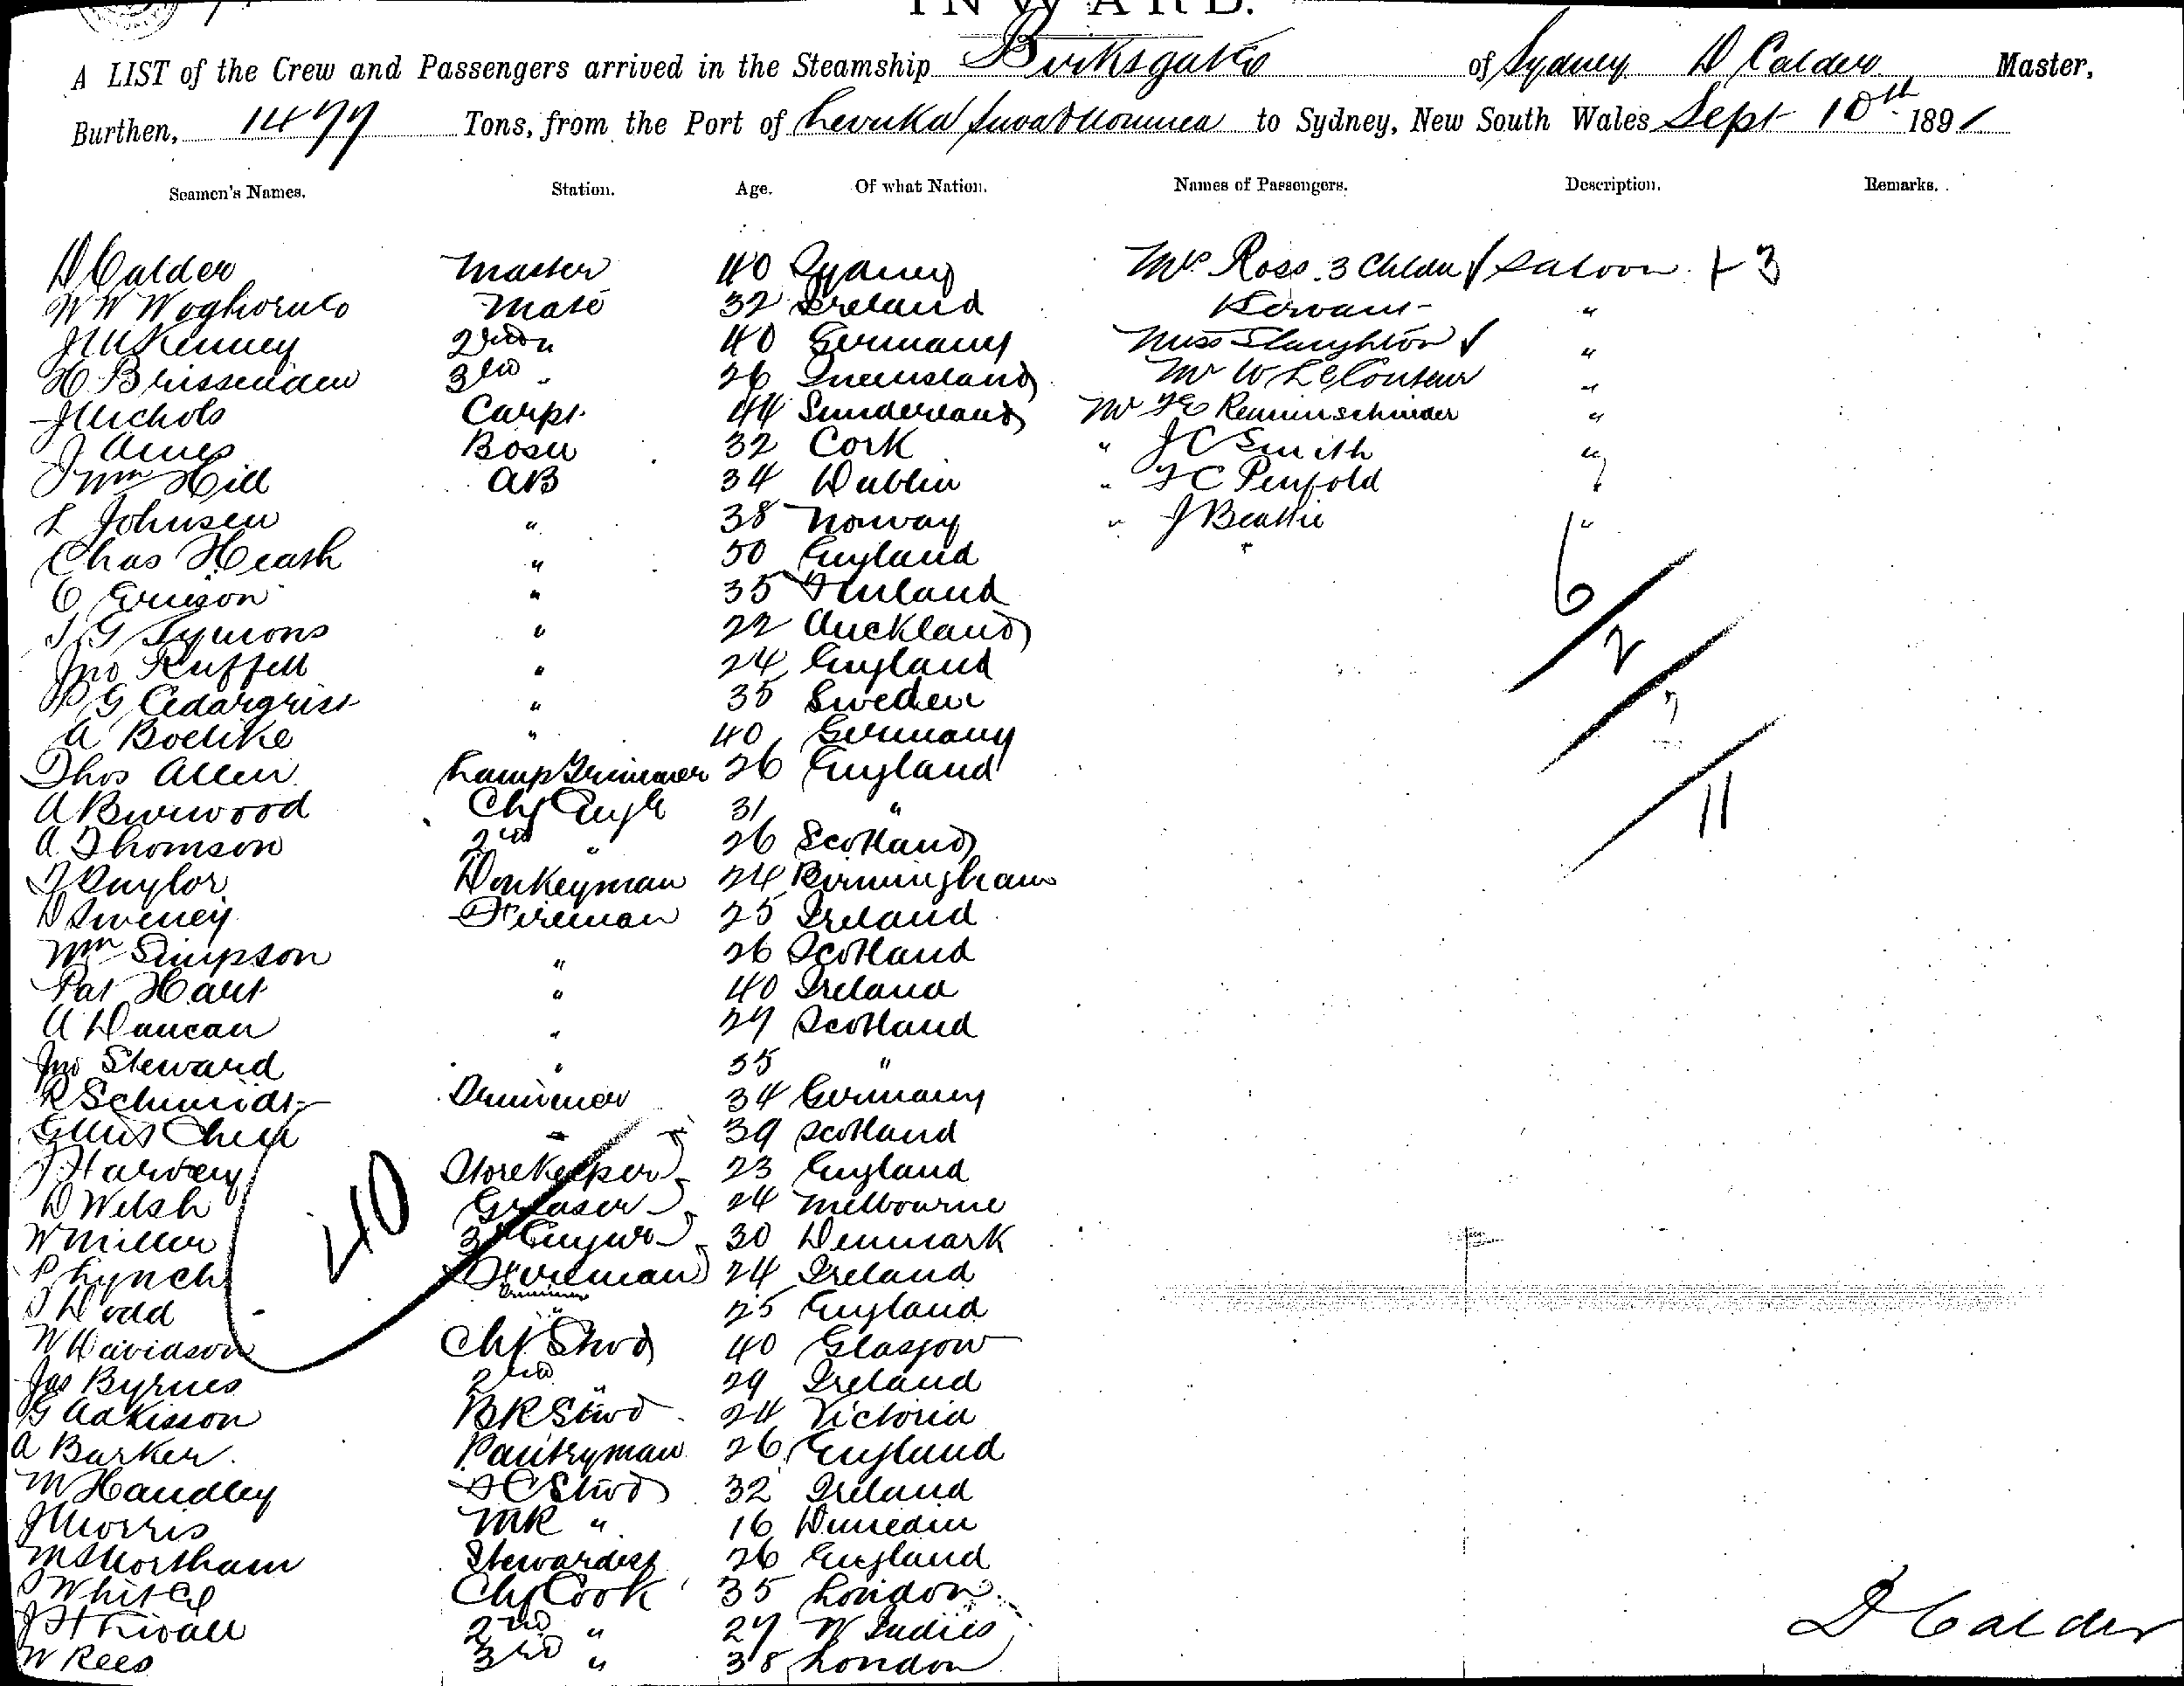 INWARD.
A LIST of the Crew and Passengers arrived in the Steamship Birksgate of Sydney D Calder Master,
Burthen, 1477 Tons, from the Port of Levuka Suva & Noumea to Sydney, New South Wales Sept 10th 1891
Seamen's Names. Station. Age. Of what Nation. Names of Passengers. Description. Remarks.
D Calder Master 40 Sydney Mrs Ross 3 Childn Saloon + 3
W W Woghorn Mate 32 Ireland Servant "
J McKenney 2nd 40 Germany Miss Slaughton "
H Brissenden 3rd " 26 Queensland Mr W LeCouteur "
J Nichols Carpt 44 Sunderland Mr "
J Ames Bosn 32 Cork " J C Smith "
Wm Hill AB 34 Dublin " F C Penfold "
L Johnsen " 38 Norway " J Beattie "
Chas Heath " 50 England 6
O Ericson " 35 Finland
J G Symons " 22 Auckland 2
Jno Ruffell " 24 England
P G Cedargrist " 35 Sweden
A Boelike " 40 Germany
Thos Allen Lamp Trimmer 26 England 11
A Burwood Chf Engr 31 "
A Thomson 2nd " 26 Scotland
T Taylor Donkeyman 24 Birmingham
D Sweney Fireman 25 Ireland
Wm Simpson " 26 Scotland
Pat Hart " 40 Ireland
A Duncan " 27 Scotland
Jno Steward " 35 "
R Schmidt Trimmer 34 Germany
" 39 Scotland
J Harvey Storekeeper 23 England
D Welsh Greaser 24 Melbourne
W Miller 3rd Engnr 30 Denmark
P Lynch Fireman 24 Ireland
40
T Dodd Trimmer " 25 England
W Davidson Chf Stwd 40 Glasgow
Jas Byrnes 2nd " 29 Ireland
G Adkisson BR Stwd 24 Victoria
A Barker Pantryman 26 England
M Handley FC Stwd 32 Ireland
J Morris MR " 16 Dunedin
M S Northam Stewardess 26 England
Chf Cook 35 London
2nd " 27 W Indies D Calder
W Rees 3rd " 38 London